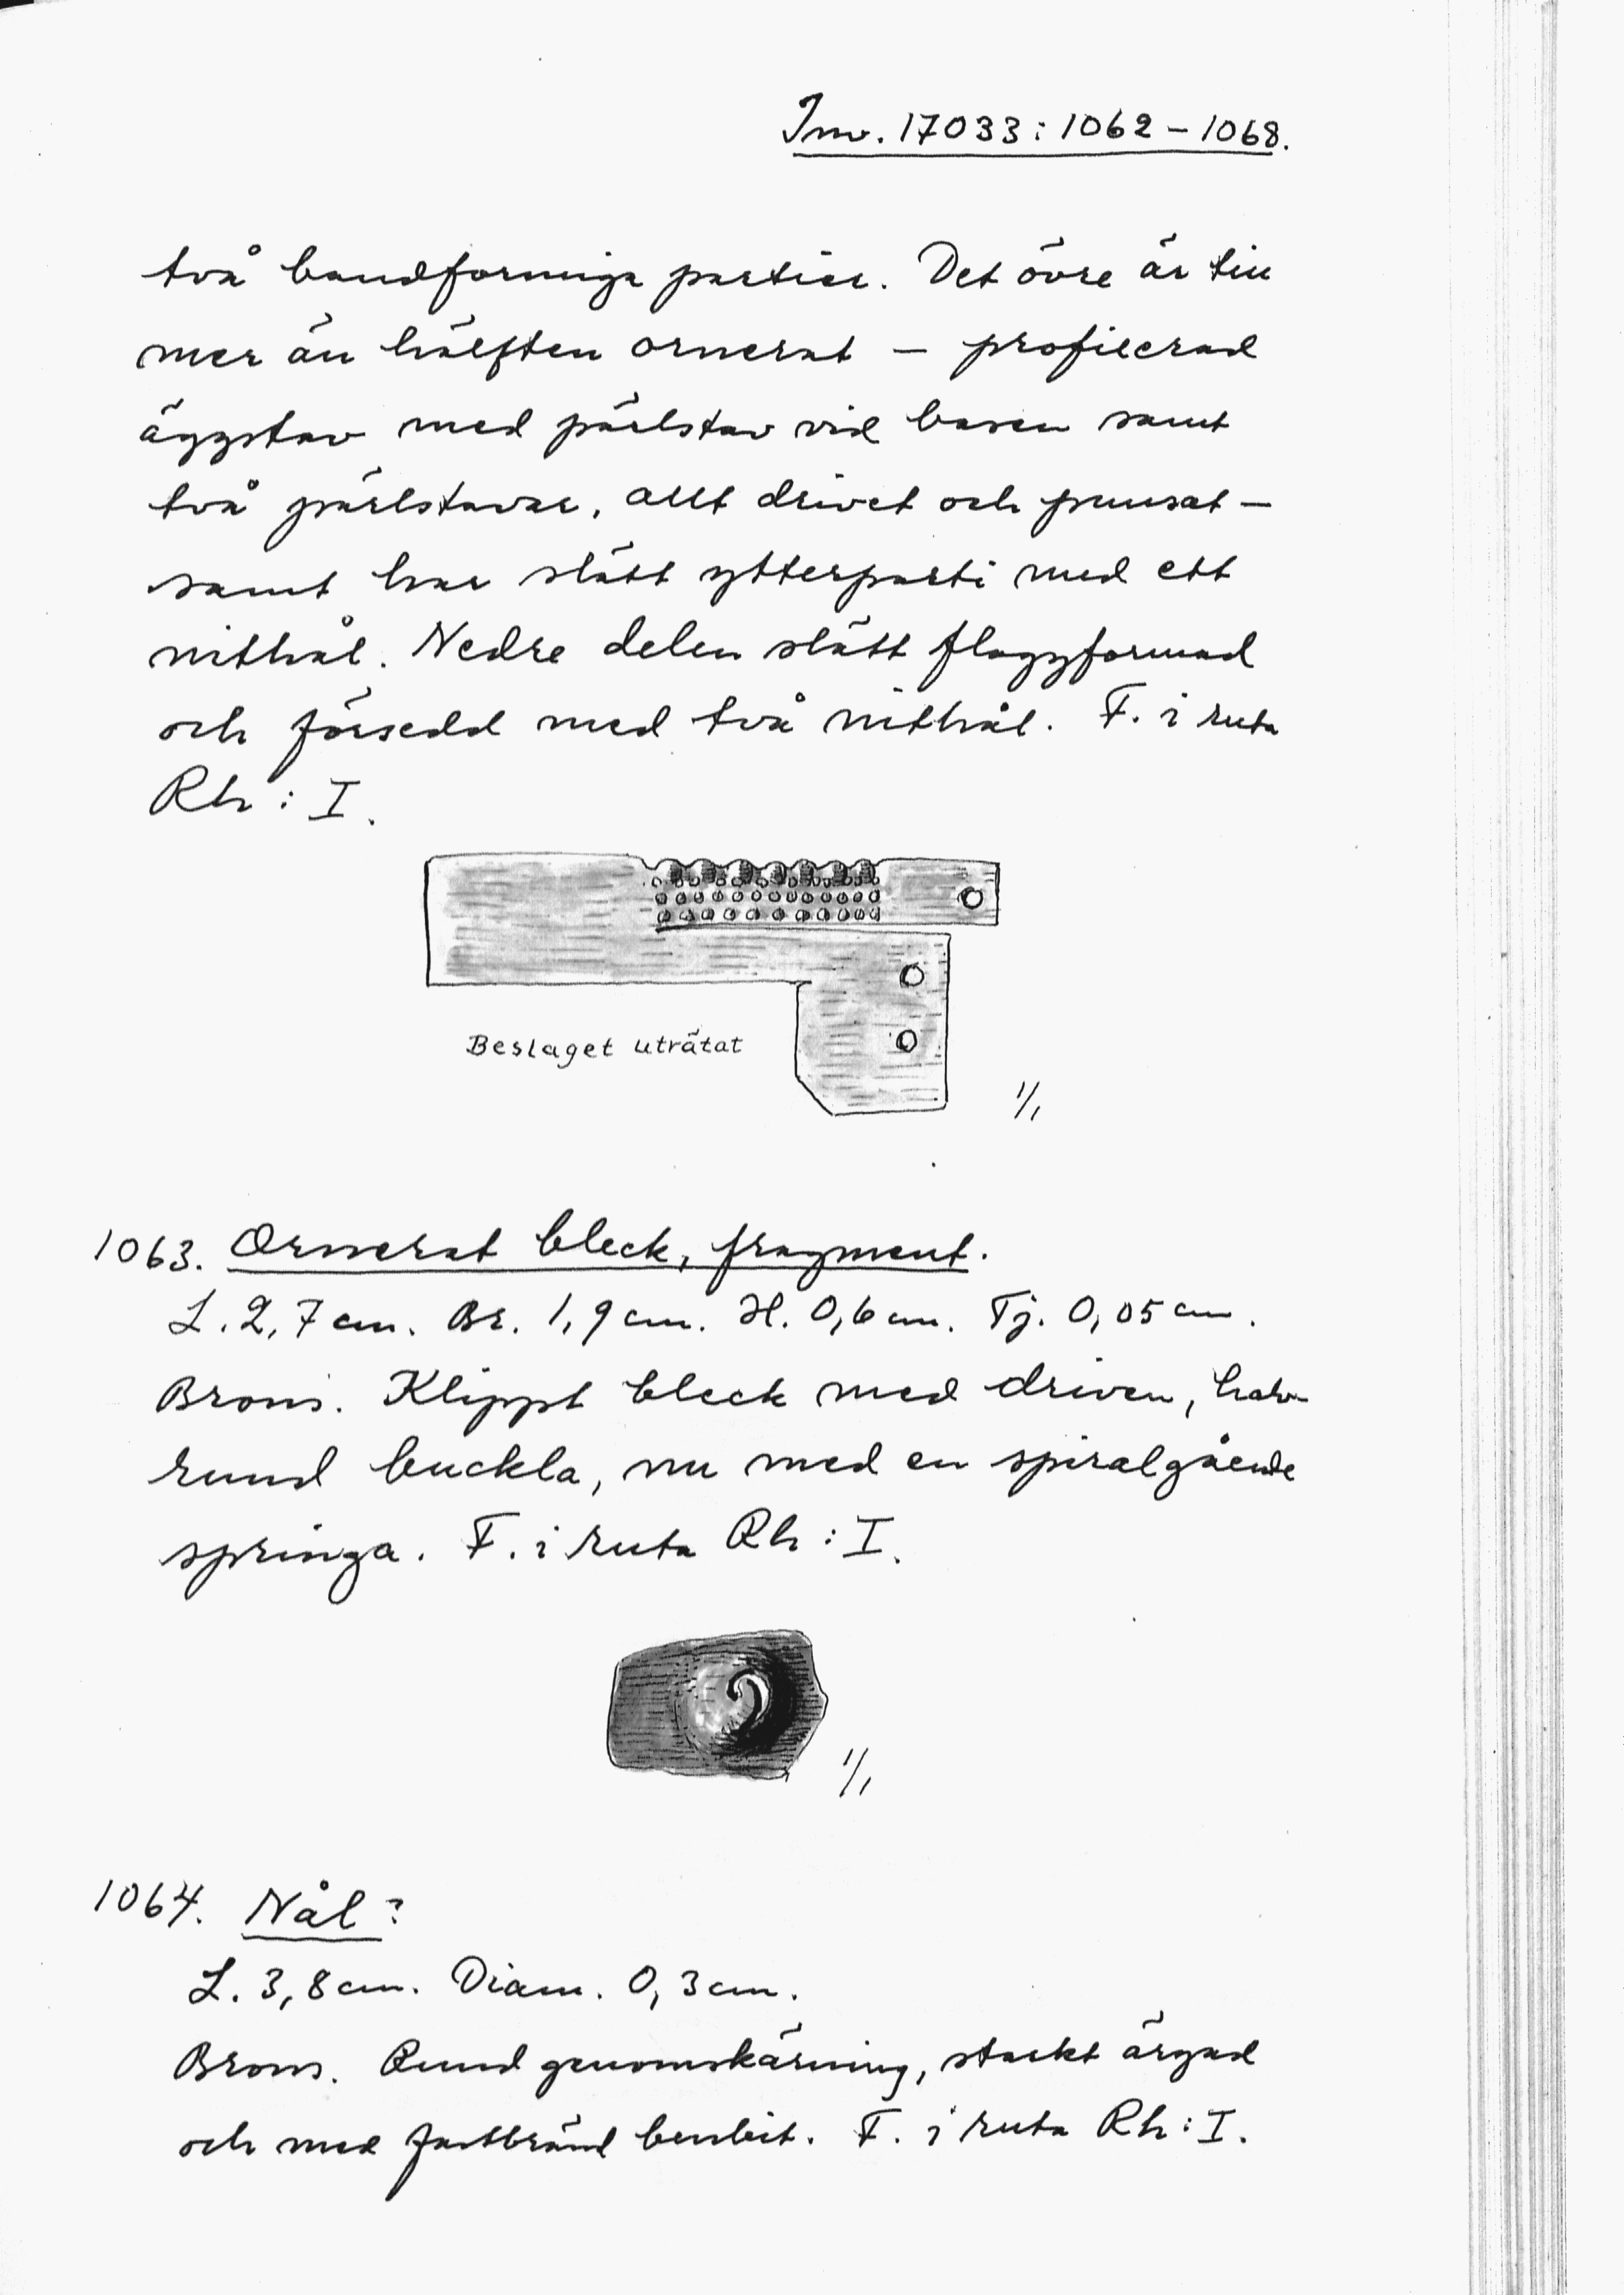 Inv. 17033:1062-1068.
två bandformiga partier. Det övre är till
mer än hälften ornerat – profilerad
äggstav med pärlstav vid basen samt
två pärlstavar, allt drivet och punsat –
samt har slätt ytterparti med ett
nithål. Nedre delen slätt flaggformad
och försedd med två nithål. F. i ruta
Rh: I.
Beslaget uträtat
1/1
1063. Ornerat bleck, fragment.
L. 2,7 cm. Br. 1,9 cm. H. 0,6 cm. Tj. 0,05 cm.
Brons. Klippt bleck med driven, halv-
rund buckla, nu med en spiralgående
springa. F. i ruta Rh: I.
1/1
1064. Nål?
L. 3,8 cm. Diam. 0,3 cm.
Brons. Rund genomskärning, starkt ärgad
och med fastbränd benbit. F. i ruta Rh: I.